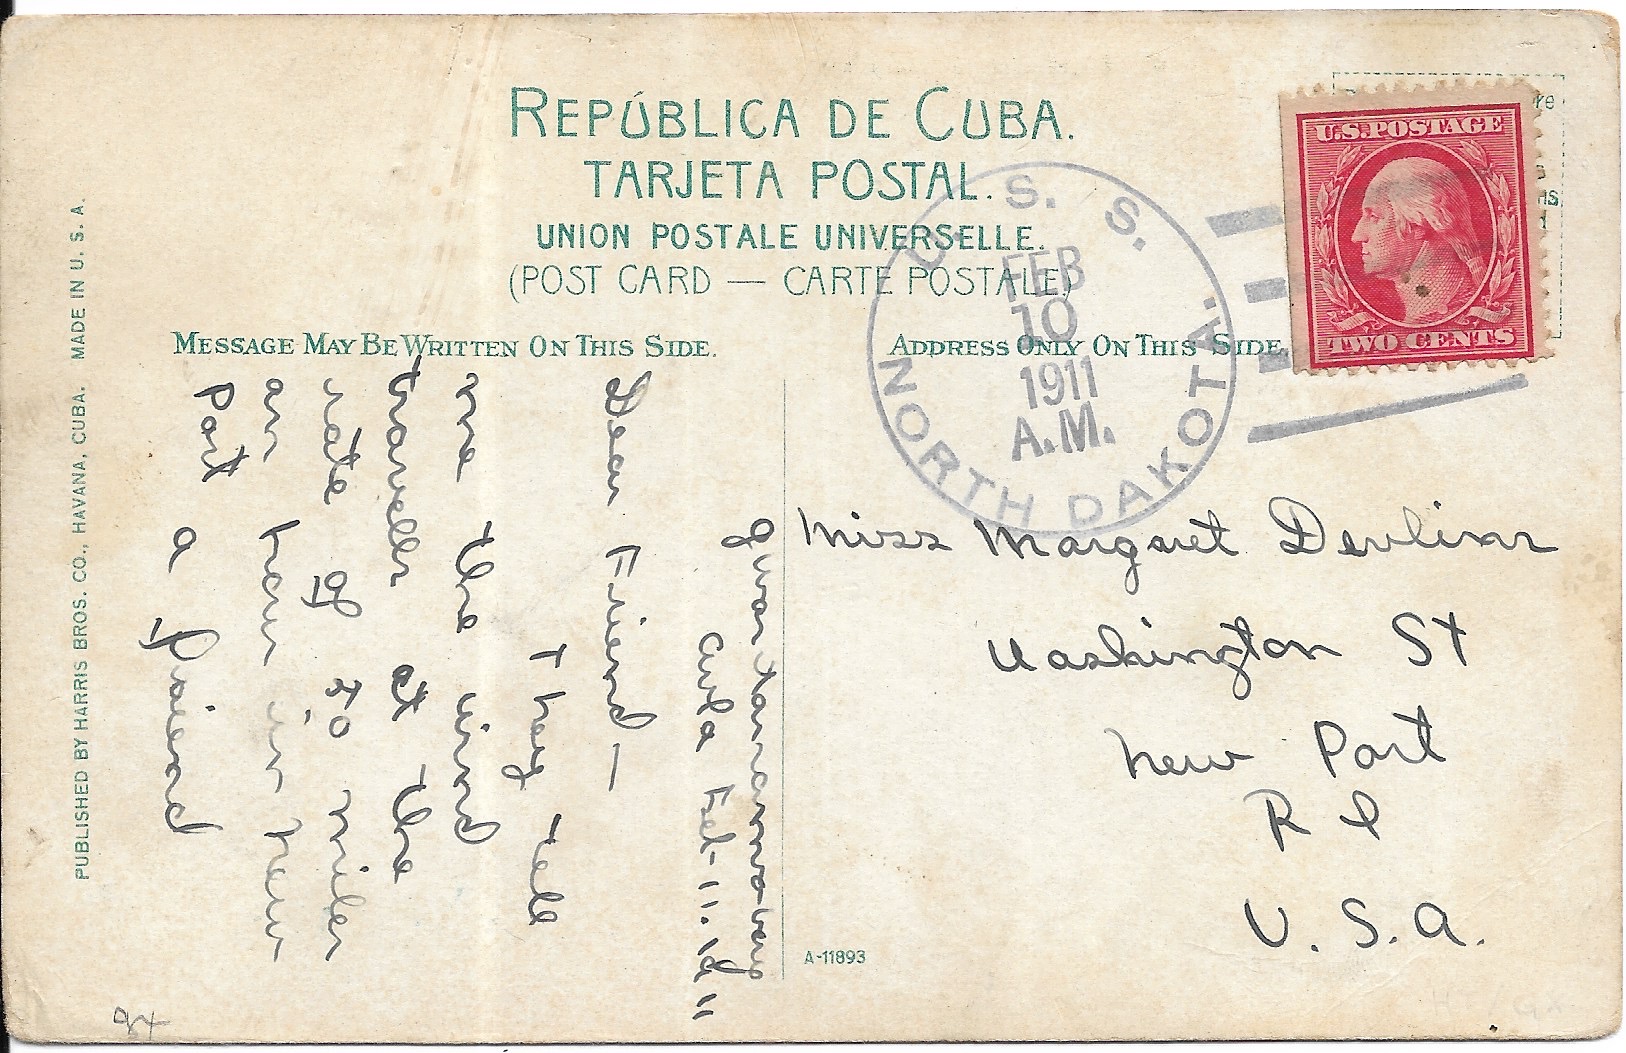 REPÚBLICA DE CUBA.
TARJETA POSTAL.
UNION POSTALE UNIVERSELLE.
(POST CARD — CARTE POSTALE)
MESSAGE MAY BE WRITTEN ON THIS SIDE.
ADDRESS ONLY ON THIS SIDE
U.S. POSTAGE
TWO CENTS
U. S. S.
NORTH DAKOTA.
FEB
10
1911
A.M.
Cuba Feb-11.1911
Dear Friend—
They tell
me the wind
travells at the
rate of 50 miles
an hour in New
Port
a friend
Miss Margaret Devlin
Washington St
New Port
R I
U. S. A.
A-11893
PUBLISHED BY HARRIS BROS. CO., HAVANA, CUBA. MADE IN U. S. A.